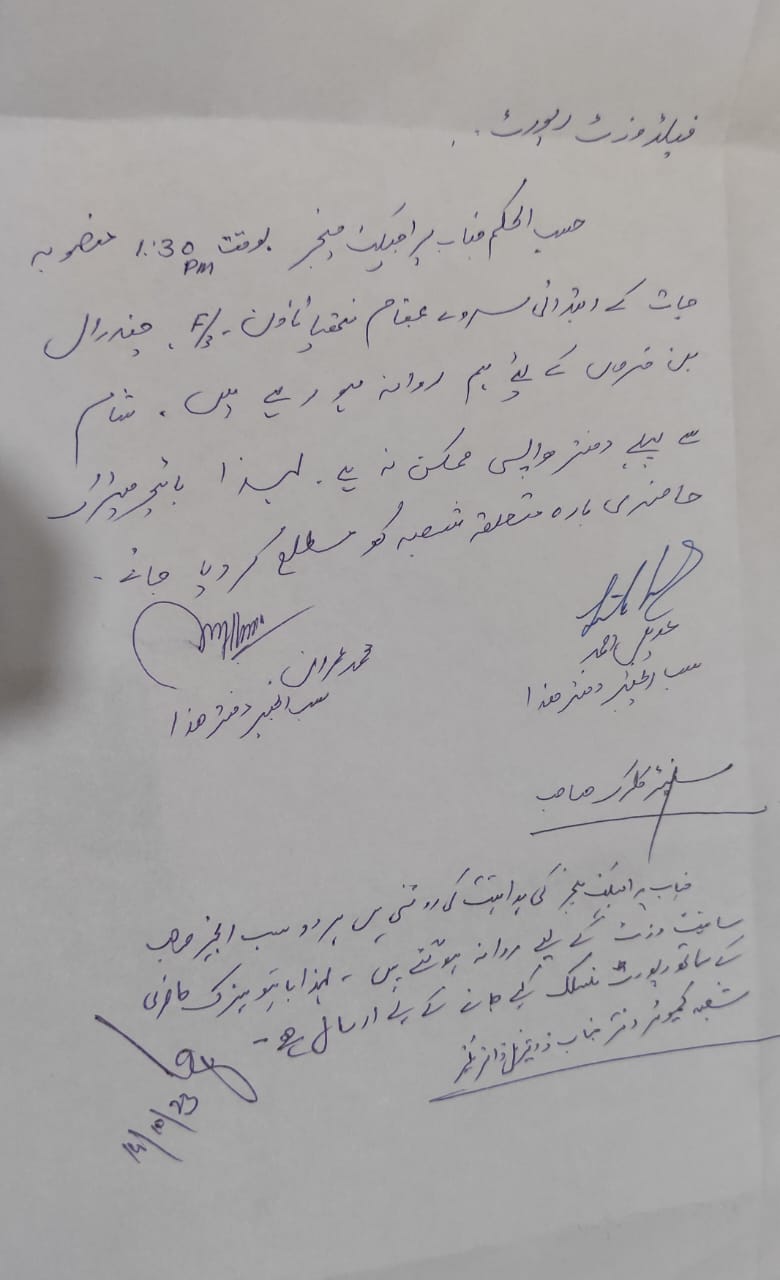 فیلڈ وزٹ رپورٹ۔
حسب الحکم جناب پراجیکٹ منیجر بوقت 1:30 PM منصوبہ
جات کے ابتدائی سروے بمقام نتھیا ٹاؤن۔ F/3، چندرال
بن خرماں کے لئے ہم روانہ ہو رہے ہیں۔ شام
سے پہلے دفتر واپسی ممکن نہ ہے۔ لہذا بائیومیٹرک
حاضری بارہ متعلقہ شعبہ کو مطلع کر دیا جائے۔
محمد عمران
سب انجینئر دفتر ھذا
احمد
سب انجینئر دفتر ھذا
سینئر کلرک صاحب
جناب پراجیکٹ منیجر کی ہدایت کی روشنی میں ہر دو سب انجینئر صاحب
سائیٹ وزٹ کے لیے روانہ ہوگئے ہیں۔ لہذا بائیومیٹرک حاضری
کے ساتھ رپورٹ منسلک کیے جانے کے لیے ارسال ہے۔
شعبہ کمپیوٹر دفتر جناب ڈویژنل ڈائریکٹر
14/10/23